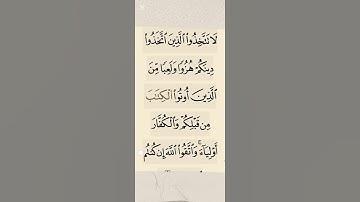 لَا تَتَّخِذُوا۟ ٱلَّذِينَ ٱتَّخَذُوا۟
دِينَكُمْ هُزُوًا وَلَعِبًا مِّنَ
ٱلَّذِينَ أُوتُوا۟ ٱلْكِتَٰبَ
مِن قَبْلِكُمْ وَٱلْكُفَّارَ
أَوْلِيَآءَ ۚ وَٱتَّقُوا۟ ٱللَّهَ إِن كُنتُم